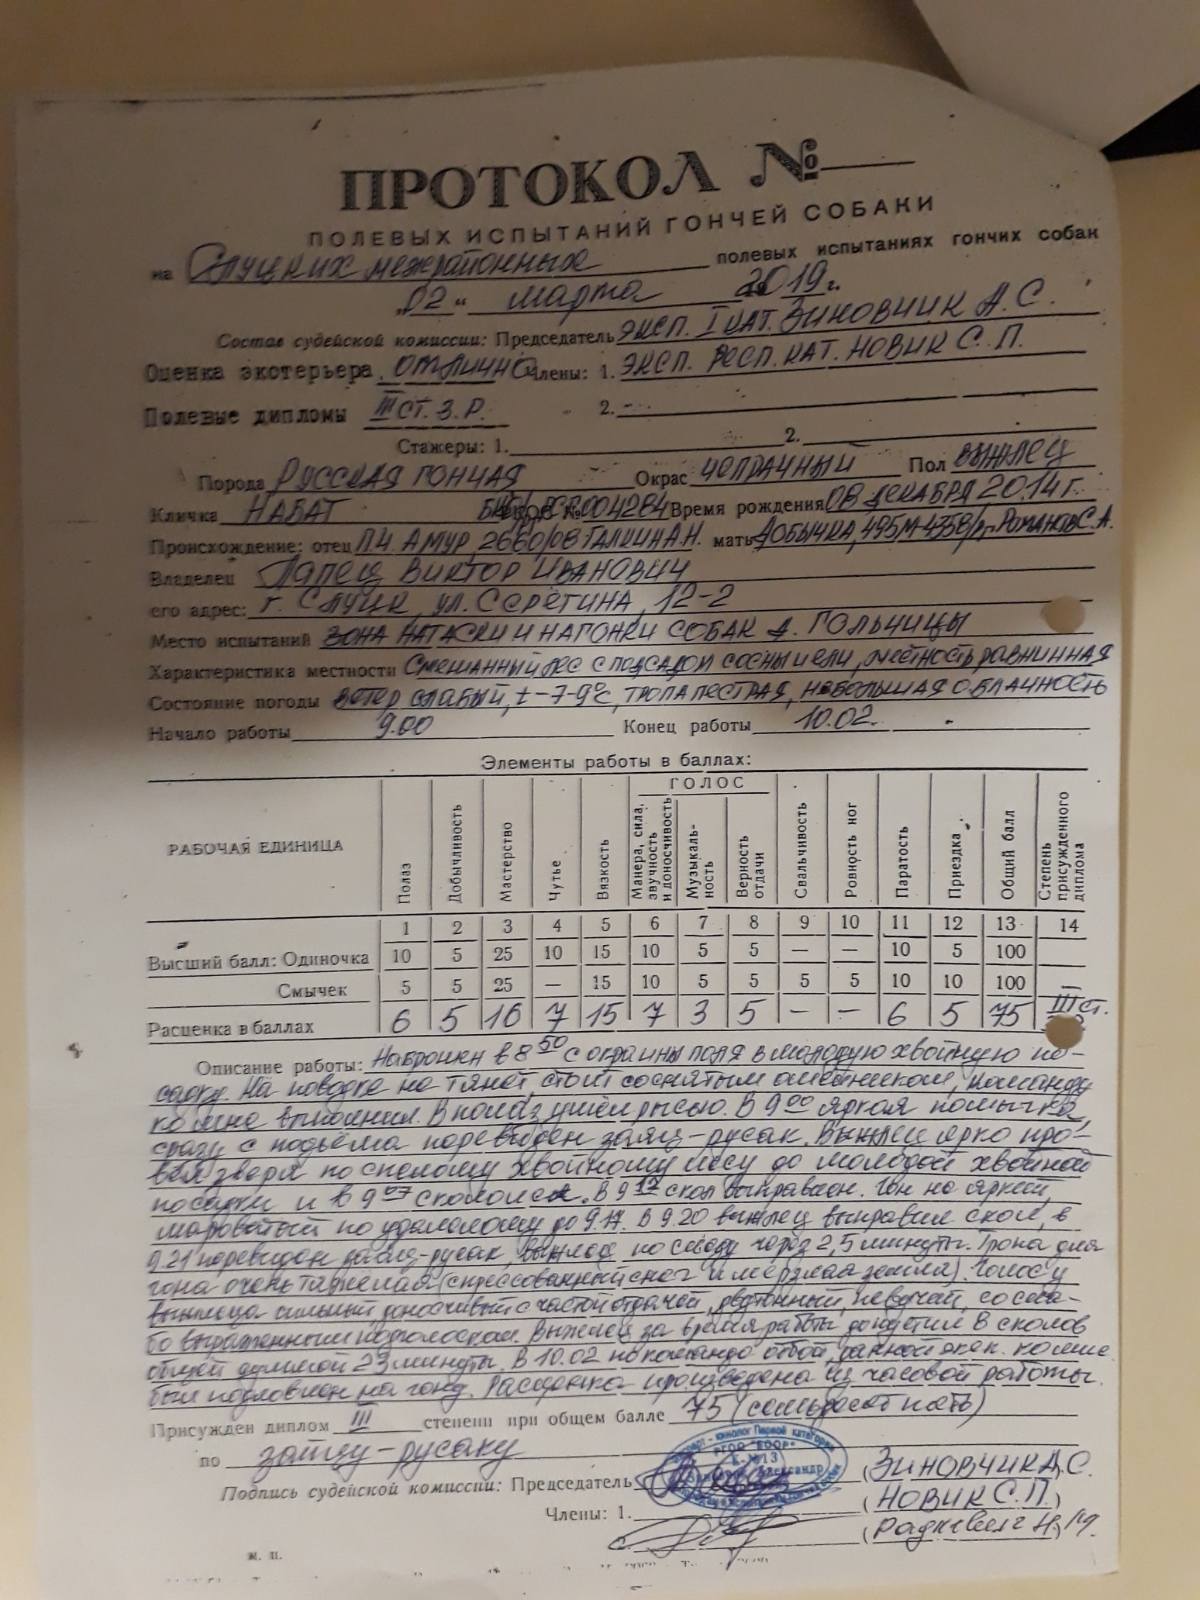 ПРОТОКОЛ №
ПОЛЕВЫХ ИСПЫТАНИЙ ГОНЧЕЙ СОБАКИ
на Слуцких межрайонных полевых испытаниях гончих собак
„02“ марта 2019 г.
Состав судейской комиссии: Председатель ЭКСП. I КАТ. ЗИНОВЧИК А.С.
Оценка экстерьера отлично Члены: 1. ЭКСП. РЕСП. КАТ. НОВИК С.П.
Полевые дипломы III СТ. З.Р. 2. -
Стажеры: 1. 2.
Порода РУССКАЯ ГОНЧАЯ Окрас ЧЕПРАЧНЫЙ Пол ВЫЖЛЕЦ
Кличка НАБАТ № 004284 Время рождения 08 ДЕКАБРЯ 2014 г.
Происхождение: отец П.Ч. АМУР, 2660/08 ГАЛКИНА Н. мать ДОБЫЧКА, 495М-4358/ РОМАНОВ С.А.
Владелец ЛАПЕЦ ВИКТОР ИВАНОВИЧ
его адрес: г. СЛУЦК, ул. СЕРЁГИНА, 12-2
Место испытаний ЗОНА НАТАСКИ И НАГОНКИ СОБАК д. ГОЛЬЧИЦЫ
Характеристика местности СМЕШАННЫЙ ЛЕС С ПОДСАДОМ СОСНЫ И ЕЛИ, МЕСТНОСТЬ РАВНИННАЯ
Состояние погоды ВЕТЕР СЛАБЫЙ, t -7-9°С, ТРОПА ПЕСТРАЯ, НЕБОЛЬШАЯ ОБЛАЧНОСТЬ
Начало работы 9.00 Конец работы 10.02.
Элементы работы в баллах:
РАБОЧАЯ ЕДИНИЦА
ГОЛОС
Полаз
Добычливость
Мастерство
Чутье
Вязкость
Манера, сила, звучность и доносчивость
Музыкаль-ность
Верность отдачи
Свальчивость
Ровность ног
Паратость
Приездка
Общий балл
Степень присужденного диплома
1 2 3 4 5 6 7 8 9 10 11 12 13 14
Высший балл: Одиночка 10 5 25 10 15 10 5 5 — — 10 5 100
Смычек 5 5 25 — 15 10 5 5 5 5 10 10 100
Расценка в баллах 6 5 16 7 15 7 3 5 — — 6 5 75 III ст.
Описание работы: Наброшен в 8 50 с окраины поля в молодую хвойную по-
садку. На поводке не тянет, стоит со снятым ошейником, команду
ко мне выполнил. В полаз ушёл рысью. В 9 00 яркая помычка,
сразу с подъёма перевиден заяц-русак. Выжлец ярко про-
вёл зверя по спелому хвойному лесу до молодой хвойной
посадки и в 9 07 скололся. В 9 12 скол выправлен. Гон не яркий,
мароватый по удалому до 9.17. В 9.20 выжлец выправил скол, в
9.21 перевиден заяц-русак, выжлец по следу через 2,5 минуты. Тропа для
гона очень тяжелая (спрессованный снег и мерзлая земля). Голос у
выжлеца сильный, доносчивый с частой отдачей, двутонный, певучий, со сла-
бо выраженным подголоском. Выжлец за время работы допустил 8 сколов
общей длиной 23 минуты. В 10.02 по команде отбой, данной экск. ко мне
был подловлен на гону. Расценка произведена из часовой работы.
Присужден диплом III степени при общем балле 75 (семьдесят пять)
по зайцу-русаку
Подпись судейской комиссии: Председатель (ЗИНОВЧИК А.С.
Члены: 1. (НОВИК С.П.)
(Радкевич Н.
Эксперт - кинолог Первой категории
РГОО "БООР"
№13
Александр
м. п.